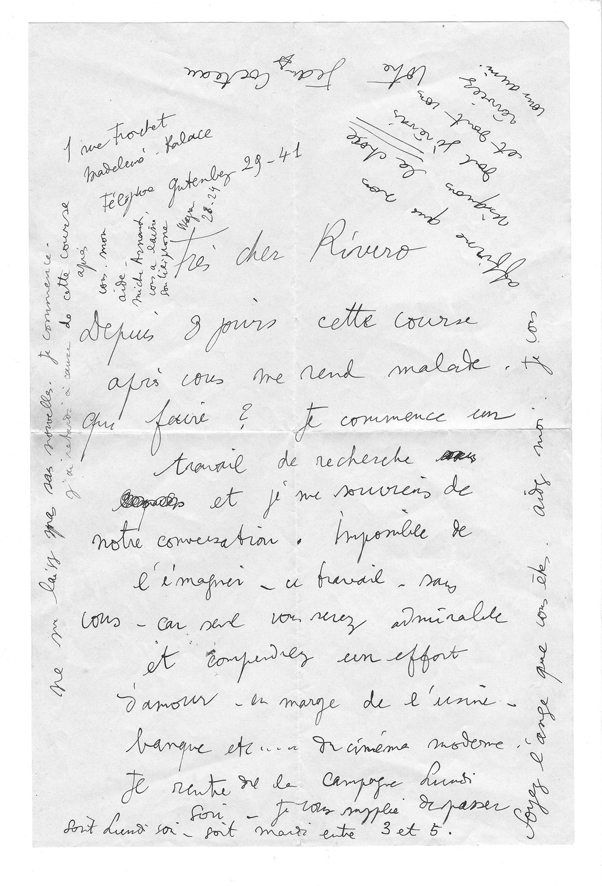 1 rue Frochet
Madeleine - Palace
Télephone Gutenberg 29-41
Très cher Rivero
Depuis 8 jours cette course
après vous me rend malade.
Que faire ? Je commence un
travail de recherche
et je me souviens de
notre conversation. Impossible de
l'imaginer - ce travail - sans
vous - car seul vous serez admirable
et comprendrez un effort
d'amour - en marge de l'usine -
banque etc.... du cinéma moderne.
Je rentre de la campagne Lundi
Soir - Je vous supplie de passer
soit Lundi soir - soit mardi entre 3 et 5.
Soyez l'ange que vous êtes. aidez moi. Je vous
affirme que nous
la chose
dont je rêvais
et dont vous
rêviez
vous aussi.
Votre
Jean Cocteau
ne me laissez pas sans nouvelles. Je commence.
à cause de cette course
après
vous. mon
aide
vous a laissé
son téléphone